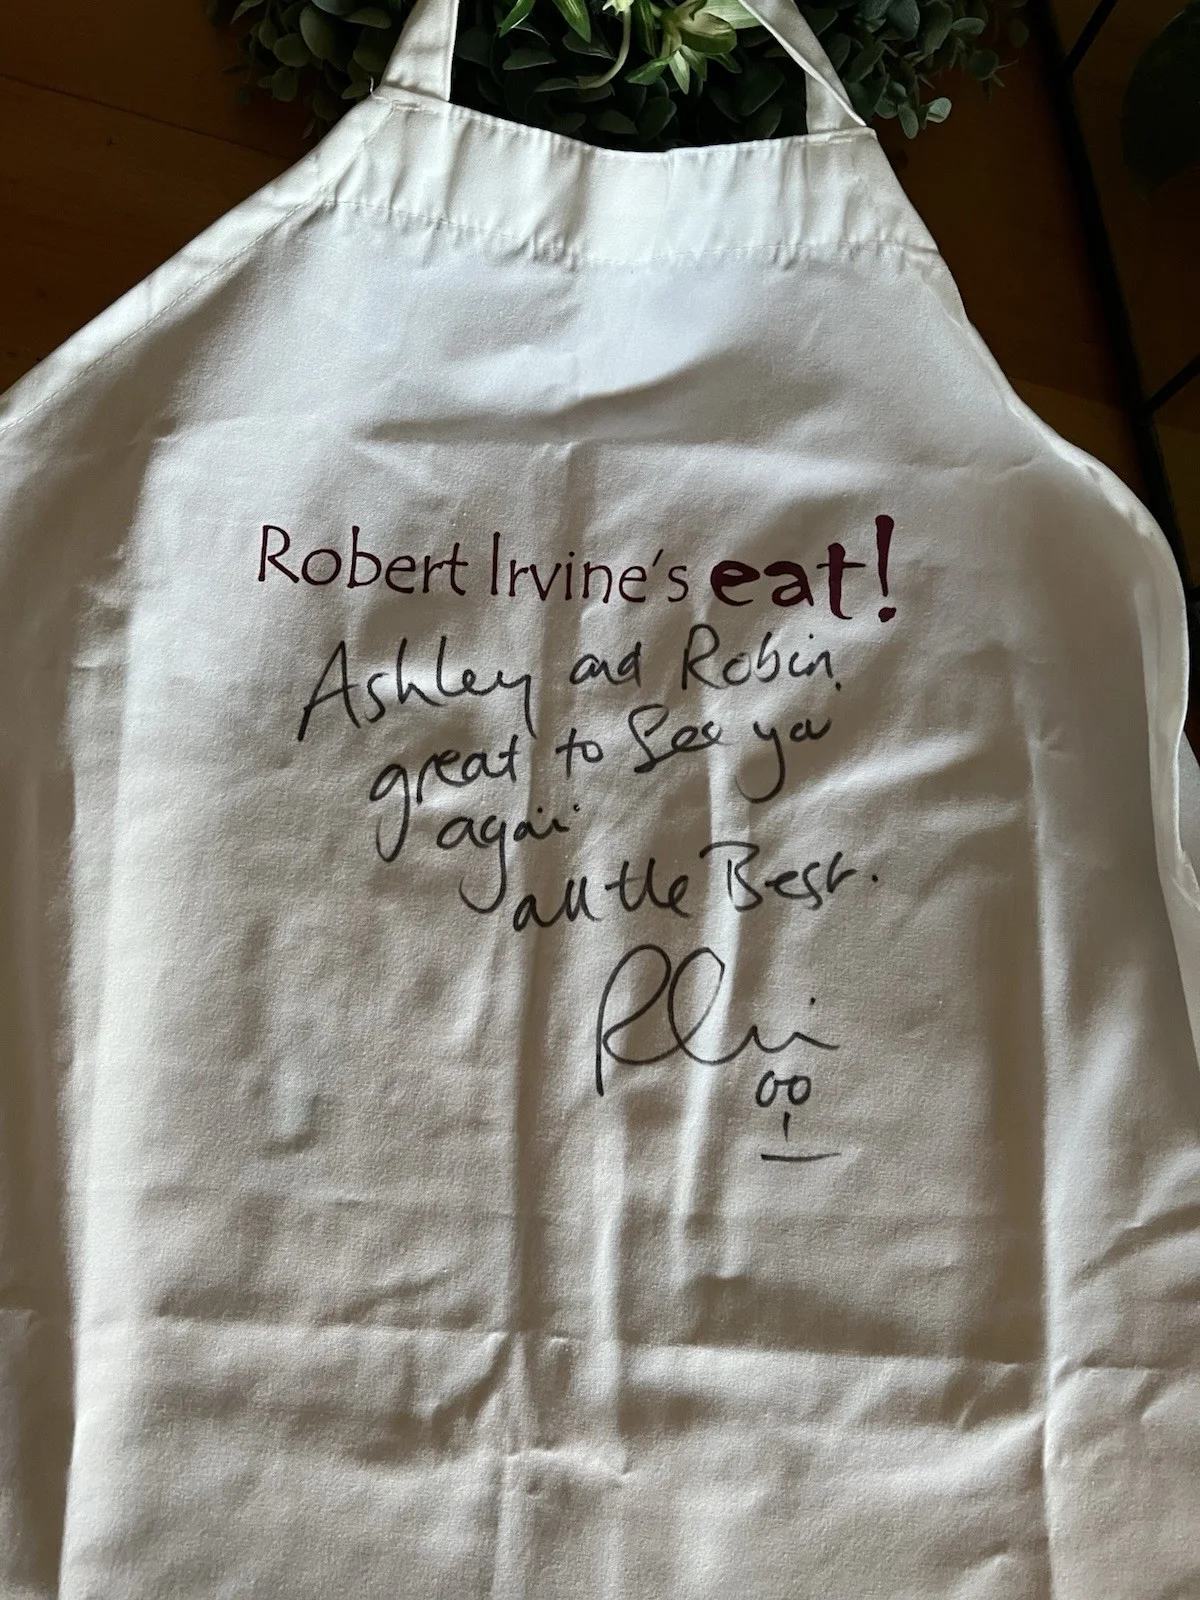 Robert Irvine's eat!
Ashley and Robin,
great to See you
again
all the Best.